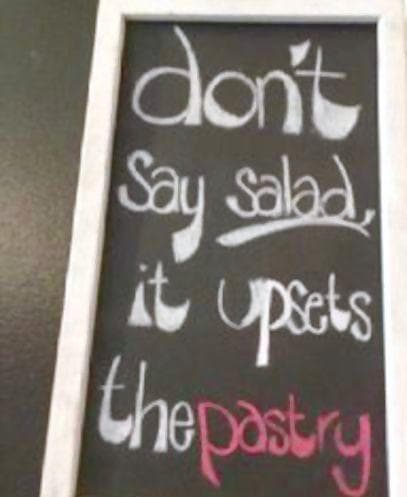 don't
say salad,
it upsets
the pastry